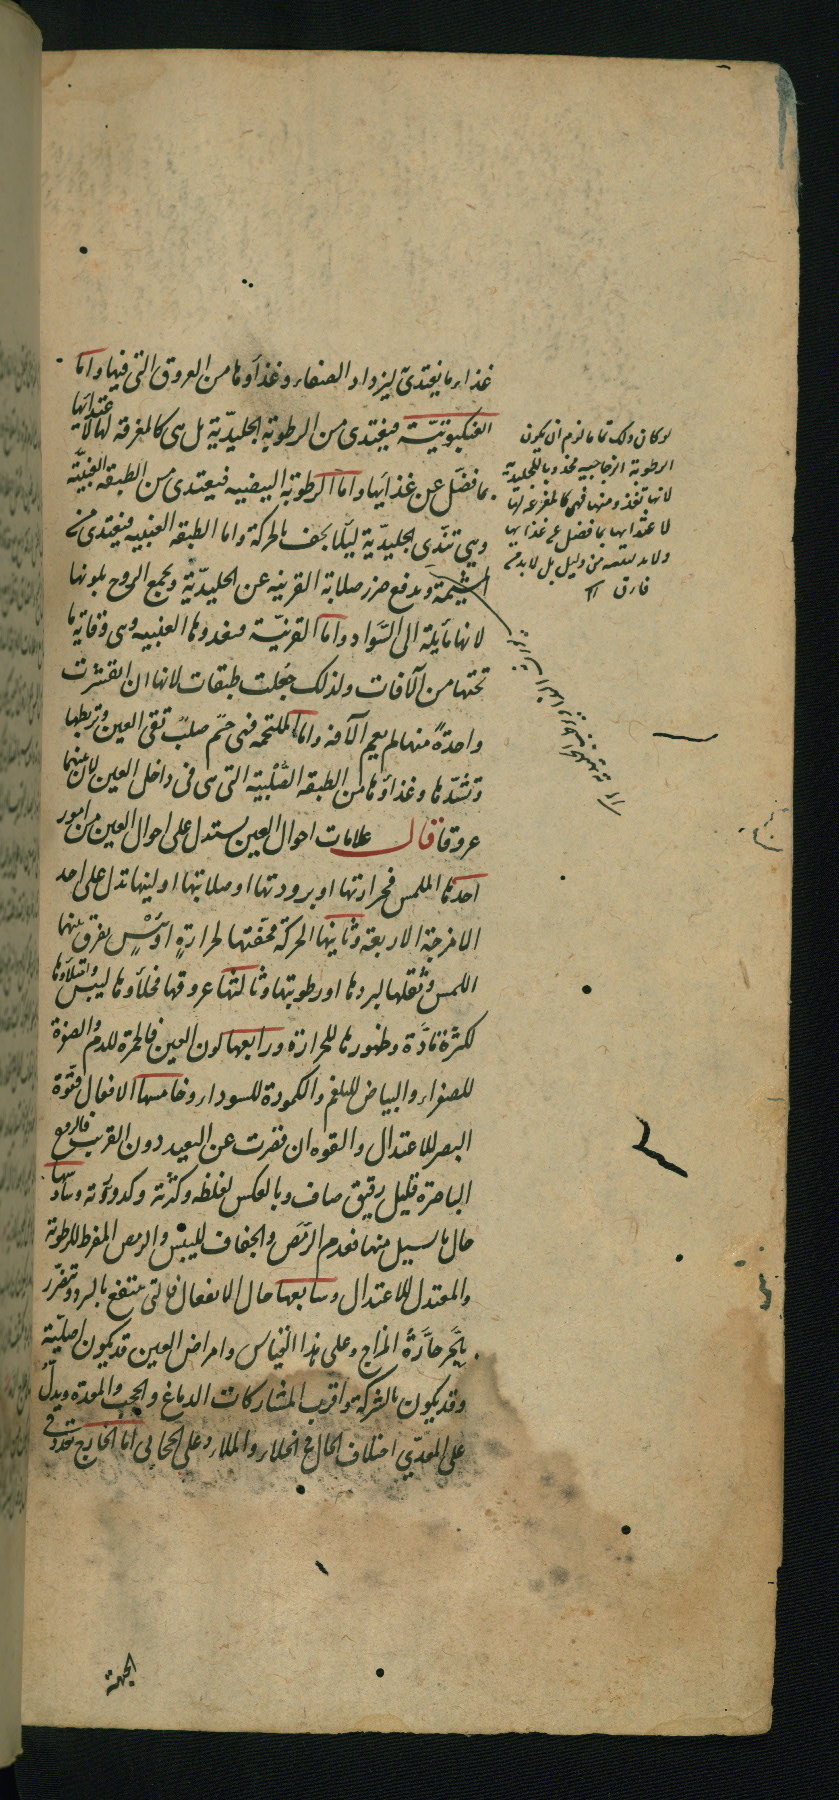 غذاء ما يغتدى ليزداد الصفاء وغذاوها من العروق التى فيها واما
العنكبوتيّة فيغتدى من الرطوبة الجليديّة بل هى كالمغرفة لها لاغتدائها
بما فضل عن غذائها واما الرطوبة البيضيه فيغتدى من الطبقة العنبيّة
وهى تندّى الجليديّة ليلا يجف بالحركة واما الطبقة العنبيه فيغتدى من
المشيمة ويدفع ضرر صلابة القرنيه عن الجليديّة ويجمع الروح بلونها
لانها مايلة الى السّواد واما القرنيّة فيغدوها العنبيه وهى وقاية ما
تحتها من الآفات ولذلك جعلت طبقات لانها ان انقشرت
واحدةً منها لم يعم الآفة واما الملتحمه فهى جسم صلب تقى العين وتربطها
وتشدّها وغذاوها من الطبقه الصلبية التى هى فى داخل العين لان بينهما
عروقا قال علامات احوال العين يستدل على احوال العين من امور
احدها الملمس فحرارتها او برودتها او صلابتها او لينها تدل على احد
الامزجة الاربعة وثانيها الحركة فخفتها لحرارةٍ او يبسٍ يفرق بينهما
اللمس وثقلها لبردها او رطوبتها وثالثها عروقها فخلاوها ليبس وامتلاوها
لكثرة مادّة وظهورها للحرارة ورابعها لون العين فالحمرة للدم والصفرة
للصفراء والبياض للبلغم والكمودة للسوداء وخامسها الافعال فقوّة
البصر للاعتدال والقوه ان قصرت عن البعيد دون القريب فالروح
الباصرة قليل رقيق صاف وبالعكس لغلظه وكثرته وكدورته وسادسها
حال ما يسيل منها فعدم الرّمص والجفاف لليبس والرمص المفرط للرطوبة
والمعتدل للاعتدال وسابعها حال الانفعال فالتى ينتفع بالبرد وتضرّر
بالحَرّ حارّة المزاج وعلى هذا القياس وامراض العين قد يكون اصليّة
وقد يكون بالشركة واقرب المشاركات الدماغ والحجب والمعدة ويدلّ
على المعدّي اختلاف الحال فى الخلاء والملاء وعلى الحجابى اما الخارج تمدد فى
الجبهة
لو كان ذلك تاما لزم ان يكون
الرطوبة الزجاجيه مجذوبا للجليديّة
لانها تغذو منها فهى كالمغرفة لها
لاغتدايها بما فضل عن غذايها
من دليل بل لابد من
فارق